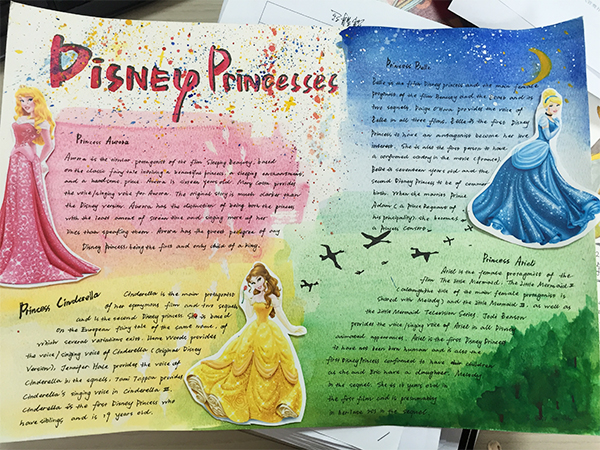 DISNEY PRINCESSES
Princess Aurora
Aurora is the titular protagonist of the film Sleeping Beauty, based
on the classic fairy tale involving a beautiful princess, a sleeping enchantment,
and a handsome prince. Aurora is sixteen years old. Mary Costa provides
the voice/singing voice for Aurora. The original story is much darker than
the Disney version. Aurora has the distinction of being both the princess
with the least amount of screen time and singing more of her
lines than speaking them. Aurora has the purest pedigree of any
Disney Princess being the first and only child of a king.
Princess Cinderella
Cinderella is the main protagonist
of her eponymous film and two sequels
and is the second Disney princess. She is based
on the European fairy tale of the same name, of
which several variations exist. Ilene Woods provides
the voice/singing voice of Cinderella (Original Disney
Version), Jennifer Hale provides the voice of
Cinderella in the sequels. Tami Tappan provides
Cinderella's singing voice in Cinderella III.
Cinderella is the first Disney Princess who
have siblings and is 19 years old.
Princess Belle
Belle is the film Disney princess and the main female
protagonist of the film Beauty and the and its
two sequels. Paige O'Hara provides the voice of
Belle in all three films. Belle is the first Disney
Princess to have an antagonist become her love
interest. She is also the first person to have
a confirmed in the movie (France).
Belle is seventeen years old and the
second Disney Princess to be of common
birth. When she marries Prince
Adam (a Prince Regnant of
his principality), she becomes
a Princess Consort.
Princess Ariel
Ariel is the female protagonist of the
film The Little Mermaid, The Little Mermaid II
(alongside the main female protagonist is
shared with Melody) and the Little Mermaid III, as well as
the Little Mermaid Television Series. Jodi Benson
provides the voice/singing voice of Ariel in all Disney
animated appearances. Ariel is the first Disney Princess
to have not been born human and is also the
first Disney Princess confirmed to have had children
as she and Eric have a daughter, Melody
in the sequel. She is 16 years old in
the first film and is presumably
in her late 20s in the sequel.